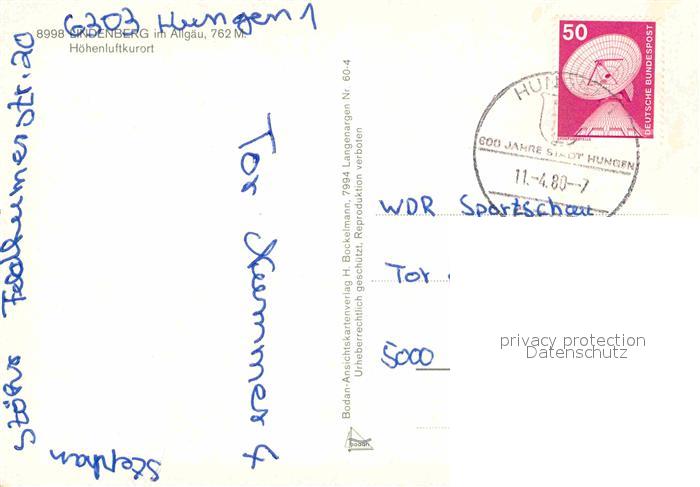 6303 Hungen 1
8998 LINDENBERG im Allgäu, 762 M.
Höhenluftkurort
Feldheimerstr. 20
Stephan
Tor Nummer 4
Bodan-Ansichtskartenverlag H. Bockelmann, 7994 Langenargen Nr. 60-4
Urheberrechtlich geschützt. Reproduktion verboten
bodan
50
DEUTSCHE BUNDESPOST
HUN
600 JAHRE STADT HUNGEN
11.-4.80--7
WDR Sportschau
Tor
5000
privacy protection
Datenschutz